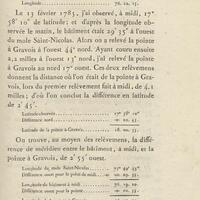 Longitude
Le 12 février 1785, j'ai observé, à midi, 17°
58′ 10″ de latitude; et d'après la longitude ob-
servée le matin, le bâtiment était 29′ 35″ à l'ouest
du mole Saint-Nicolas. Alors on a relevé la pointe
à Gravois à l'ouest 44° nord. Ayant couru ensuite
2,2 milles à l'ouest 13° nord, j'ai relevé la pointe
à Gravois au nord 17° ouest. Ces deux relèvemens
donnent la distance où l'on était de la pointe à Gra-
vois, lors du premier relèvement fait à midi, de 4
milles: d'où l'on conclut la différence en latitude
de 2′ 45″.
Latitude observée
Différence nord
Latitude de la pointe à Gravois
On trouve, au moyen des relèvemens, la diffé-
rence de méridien entre le bâtiment, à midi, et la
pointe à Gravois, de 2′ 55″ ouest.
Longitude du mole Saint-Nicolas
Différence ouest pour le point de midi
Longitude du bâtiment à midi
Différence ouest pour la pointe à Gravois